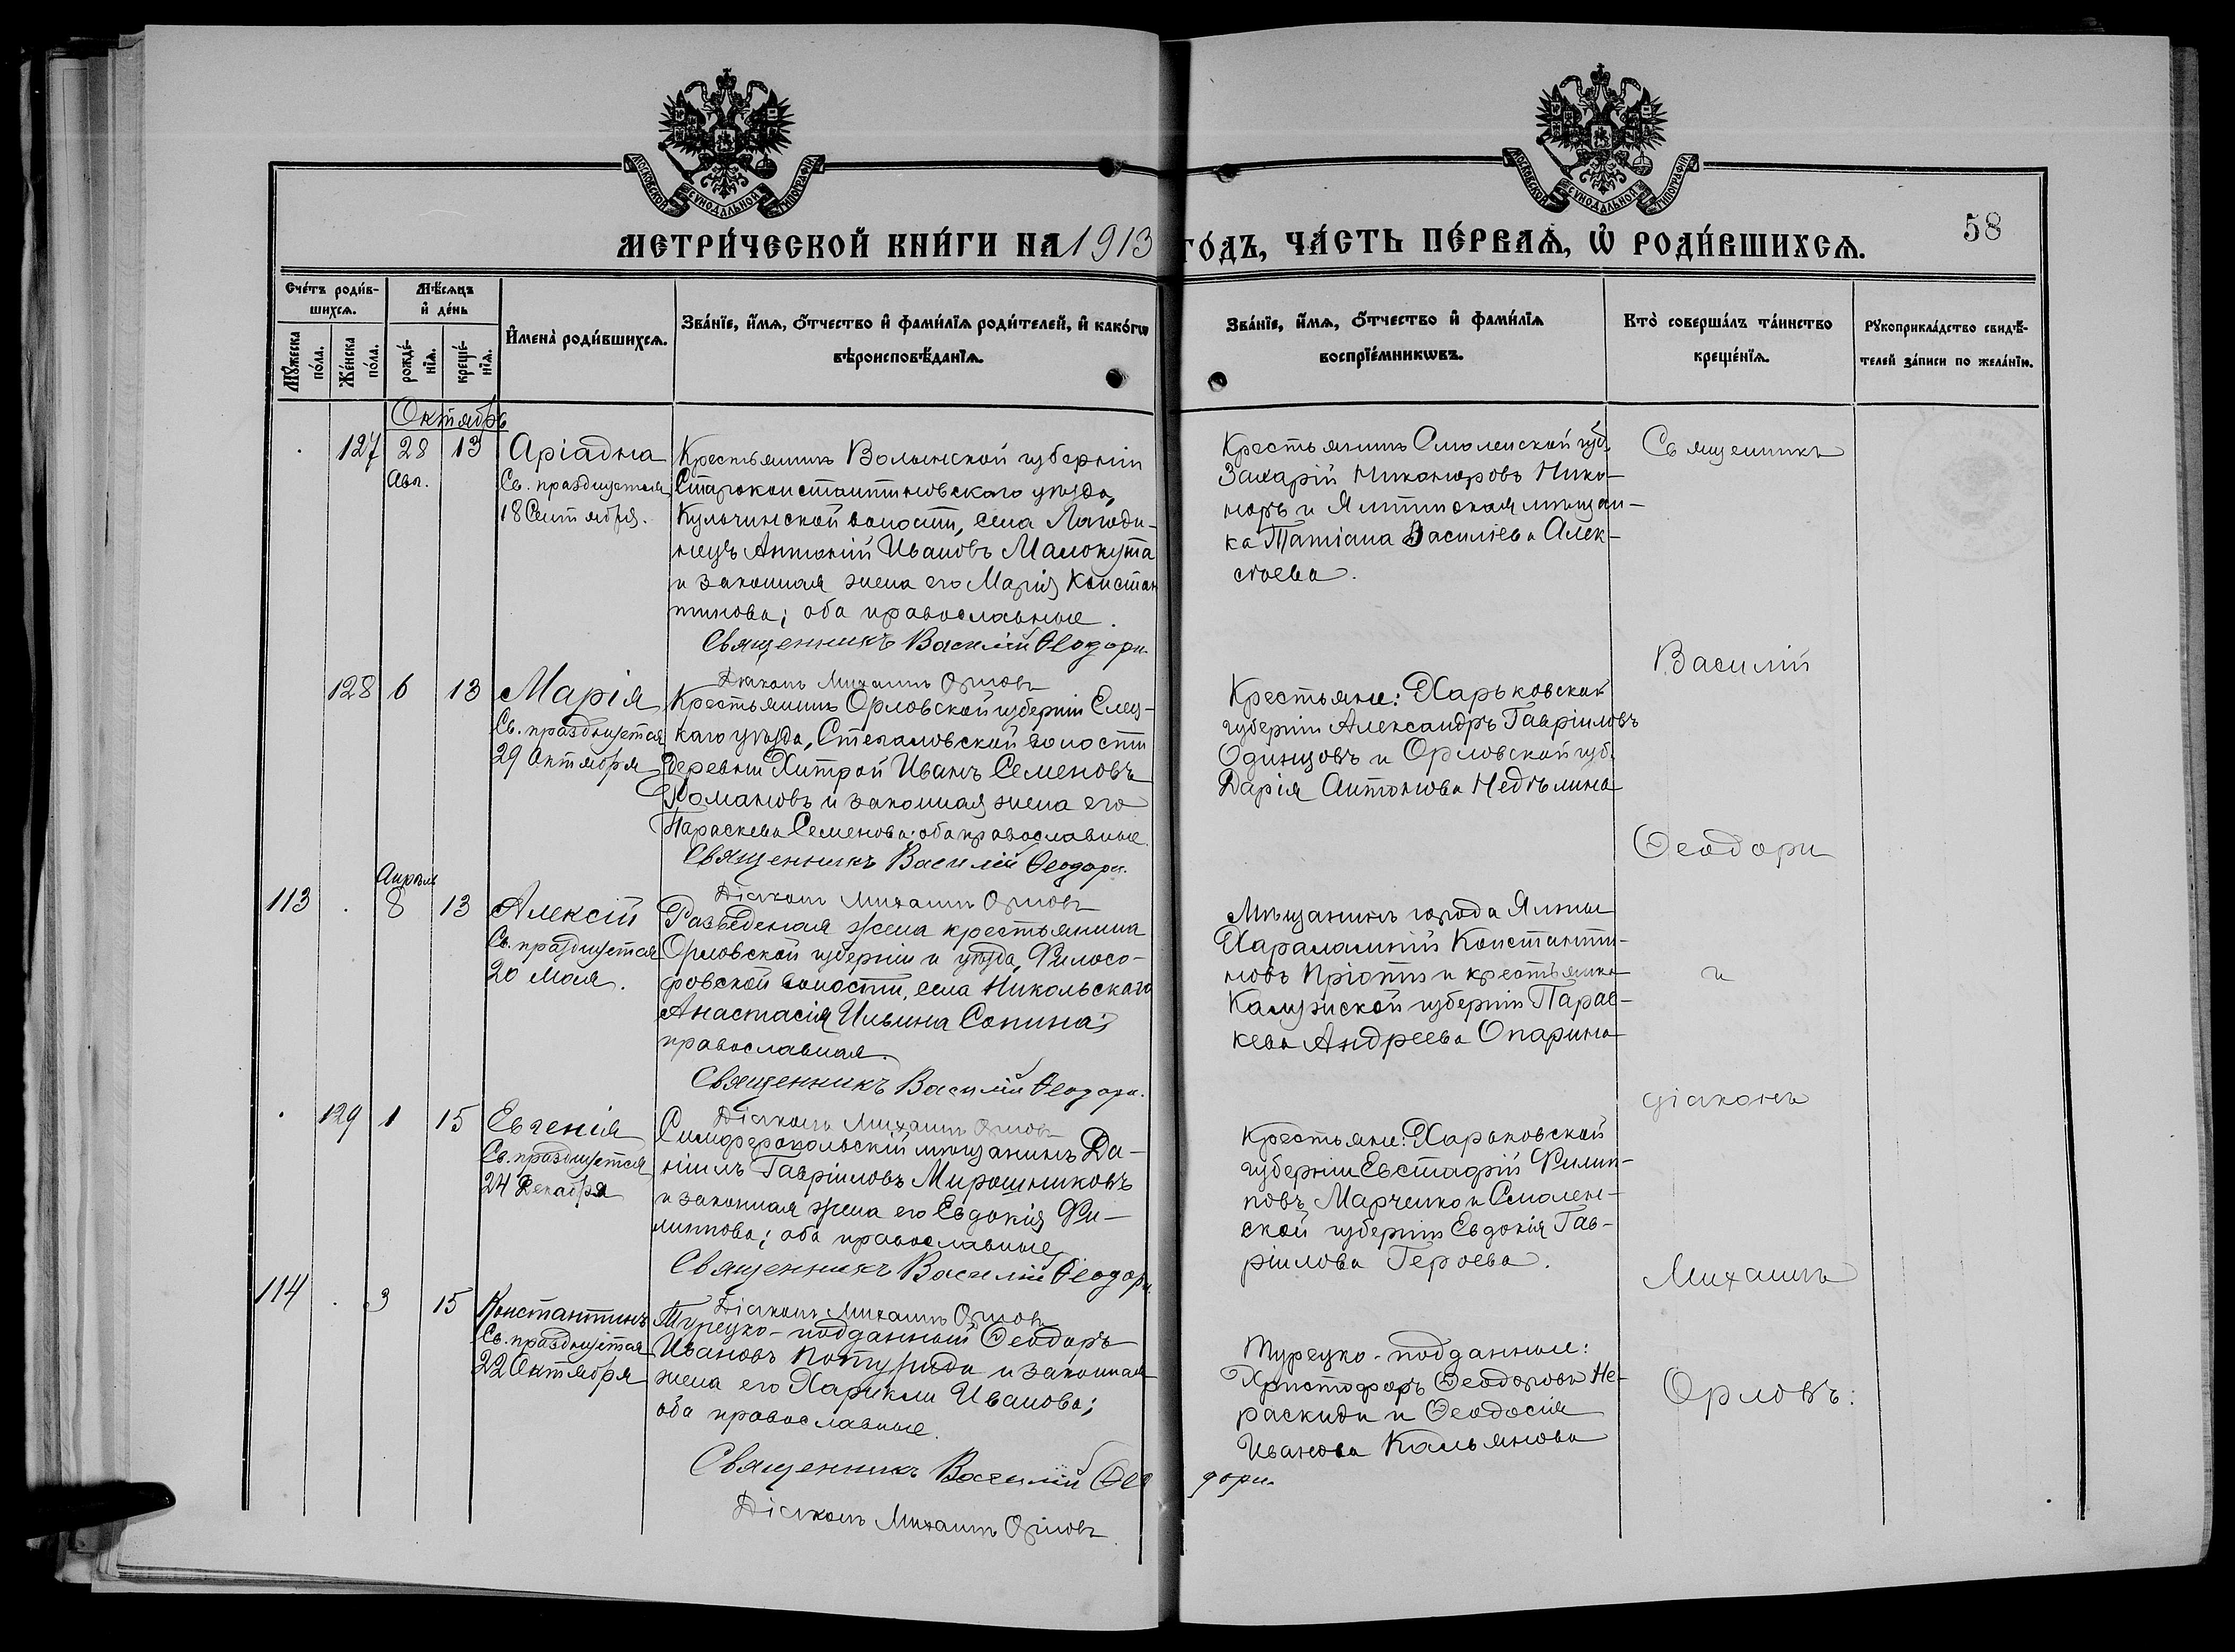 МОСКОВСКОЙ СѴНОДАЛЬНОЙ ТИПОГРАФІИ
МОСКОВСКОЙ СѴНОДАЛЬНОЙ ТИПОГРАФІИ
58
МЕТРИ́ЧЕСКОЙ КНИ́ГИ НА 1913 ГО́ДЪ, ЧА́СТЬ ПЕ́РВАѦ, Ѡ҆ РОДИ́ВШИХСѦ.
Сче́тъ роди́в-
шихсѧ.
Мꙋ́жеска по́ла.
Же́нска по́ла.
Мѣ́сѧцъ
и҆ де́нь
рожде́-
нїѧ.
креще́-
нїѧ.
И҆мена̀ роди́вшихсѧ.
Зва́нїе, и҆́мѧ, ѻ҆́тчество и҆ фами́лїѧ роди́телей, и҆ како́гѡ
вѣроисповѣ́данїѧ.
Зва́нїе, и҆́мѧ, ѻ҆́тчество и҆ фами́лїѧ
воспрїе́мникѡвъ.
Кто̀ соверша́лъ та́инство
креще́нїѧ.
Рꙋкоприкла́дство свидѣ́-
телей за́писи по жела́нїю.
Октябрь
127 28 13
Авг.
Аріадна
Св. празднуется
18 Сентября.
Крестьянинъ Волынской губерніи
Староконстантиновскаго уѣзда,
Кульчинской волости, села Лагоди-
нецъ Антоній Ивановъ Малокута
и законная жена его Марія Констан
тинова; оба православные.
Священникъ Василій Ѳеодори.
Діаконъ Михаилъ Орловъ
Крестьянинъ Смоленской губ.
Захарій Никаноровъ Ника-
норъ и Ялтинская мѣщан-
ка Татіана Василіева Алек-
сѣева.
128 6 13
Марія
Св. празднуется
29 Октября
Крестьянинъ Орловской губерніи Елец-
каго уѣзда, Стегаловской волости
деревни Хитрой Иванъ Семеновъ
Романовъ и законная жена его
Параскева Семенова; оба православные.
Священникъ Василій Ѳеодори.
Діаконъ Михаилъ Орловъ
Крестьяне: Харьковской
губерніи Александръ Гавріиловъ
Одинцовъ и Орловской губ.
Дарія Антонова Недѣлина
113 Апрѣль 8 13
Алексій
Св. празднуется
20 Мая.
Разведеная жена крестьянина
Орловской губерніи и уѣзда, Филосо-
фовской волости, села Никольскаго
Анастасія Ильина Сопина;
православная.
Священникъ Василій Ѳеодори.
Діаконъ Михаилъ Орловъ
Мѣщанинъ города Ялты
Харалампій Константи-
новъ Пріоти и крестьянка
Калужской губерніи Парас-
кева Андреева Опарина
129 1 15
Евгенія
Св. празднуется
24 Декабря
Симферопольскій мѣщанинъ Да-
ніилъ Гавріиловъ Мирошниковъ
и законная жена его Евдокія Фи-
липпова; оба православные.
Священникъ Василій Ѳеодори.
Діаконъ Михаилъ Орловъ
Крестьяне: Харьковской
губерніи Евстафій Филип-
повъ Марченко и Смолен-
ской губерніи Евдокія Гав-
ріилова Героева.
114 3 15
Константинъ
Св. празднуется
22 Октября
Турецко-подданный Ѳеодоръ
Ивановъ и законная
жена его Хариклія Иванова;
оба православные.
Священникъ Василій Ѳеодори.
Діаконъ Михаилъ Орловъ
Турецко-подданные:
Христофоръ Ѳеодоровъ Не-
раскиди и Ѳеодосія
Иванова Кальянова
Священникъ
Василій
Ѳеодори
и
діаконъ
Михаилъ
Орловъ: